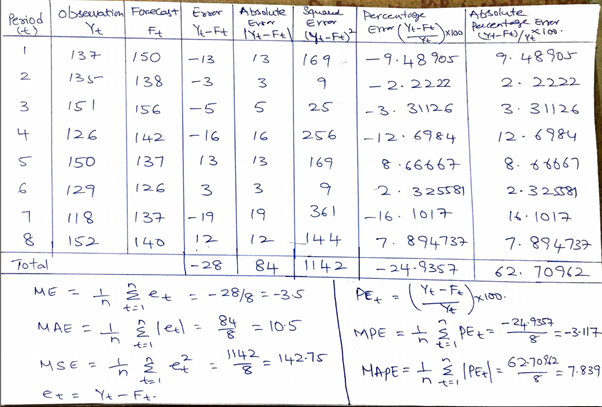 Period (t) Observation Yt Forecast Ft Error Yt-Ft Absolute Error |Yt-Ft| Squared Error (Yt-Ft)² Percentage Error (Yt-Ft/Yt)×100 Absolute Percentage Error (Yt-Ft)/Yt ×100.
1 137 150 -13 13 169 -9.48905 9.48905
2 135 138 -3 3 9 -2.2222 2.2222
3 151 156 -5 5 25 -3.31126 3.31126
4 126 142 -16 16 256 -12.6984 12.6984
5 150 137 13 13 169 8.66667 8.66667
6 129 126 3 3 9 2.325581 2.325581
7 118 137 -19 19 361 -16.1017 16.1017
8 152 140 12 12 144 7.894737 7.894737
Total -28 84 1142 -24.9357 62.70962
ME = 1/n Σ t=1 n et = -28/8 = -3.5
MAE = 1/n Σ t=1 n |et| = 84/8 = 10.5
MSE = 1/n Σ t=1 n et² = 1142/8 = 142.75
et = Yt-Ft.
PEt = (Yt-Ft/Yt)×100.
MPE = 1/n Σ t=1 n PEt = -24.9357/8 = -3.117
MAPE = 1/n Σ t=1 n |PEt| = 62.70962/8 = 7.839